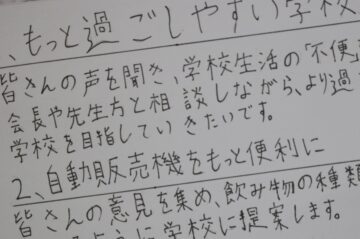 、もっと過ごしやすい学校
皆さんの声を聞き、学校生活の「不便」
会長や先生方と相談しながら、より過
学校を目指していきたいです。
2、自動販売機をもっと便利に
皆さんの意見を集め、飲み物の種類
に学校に提案します。